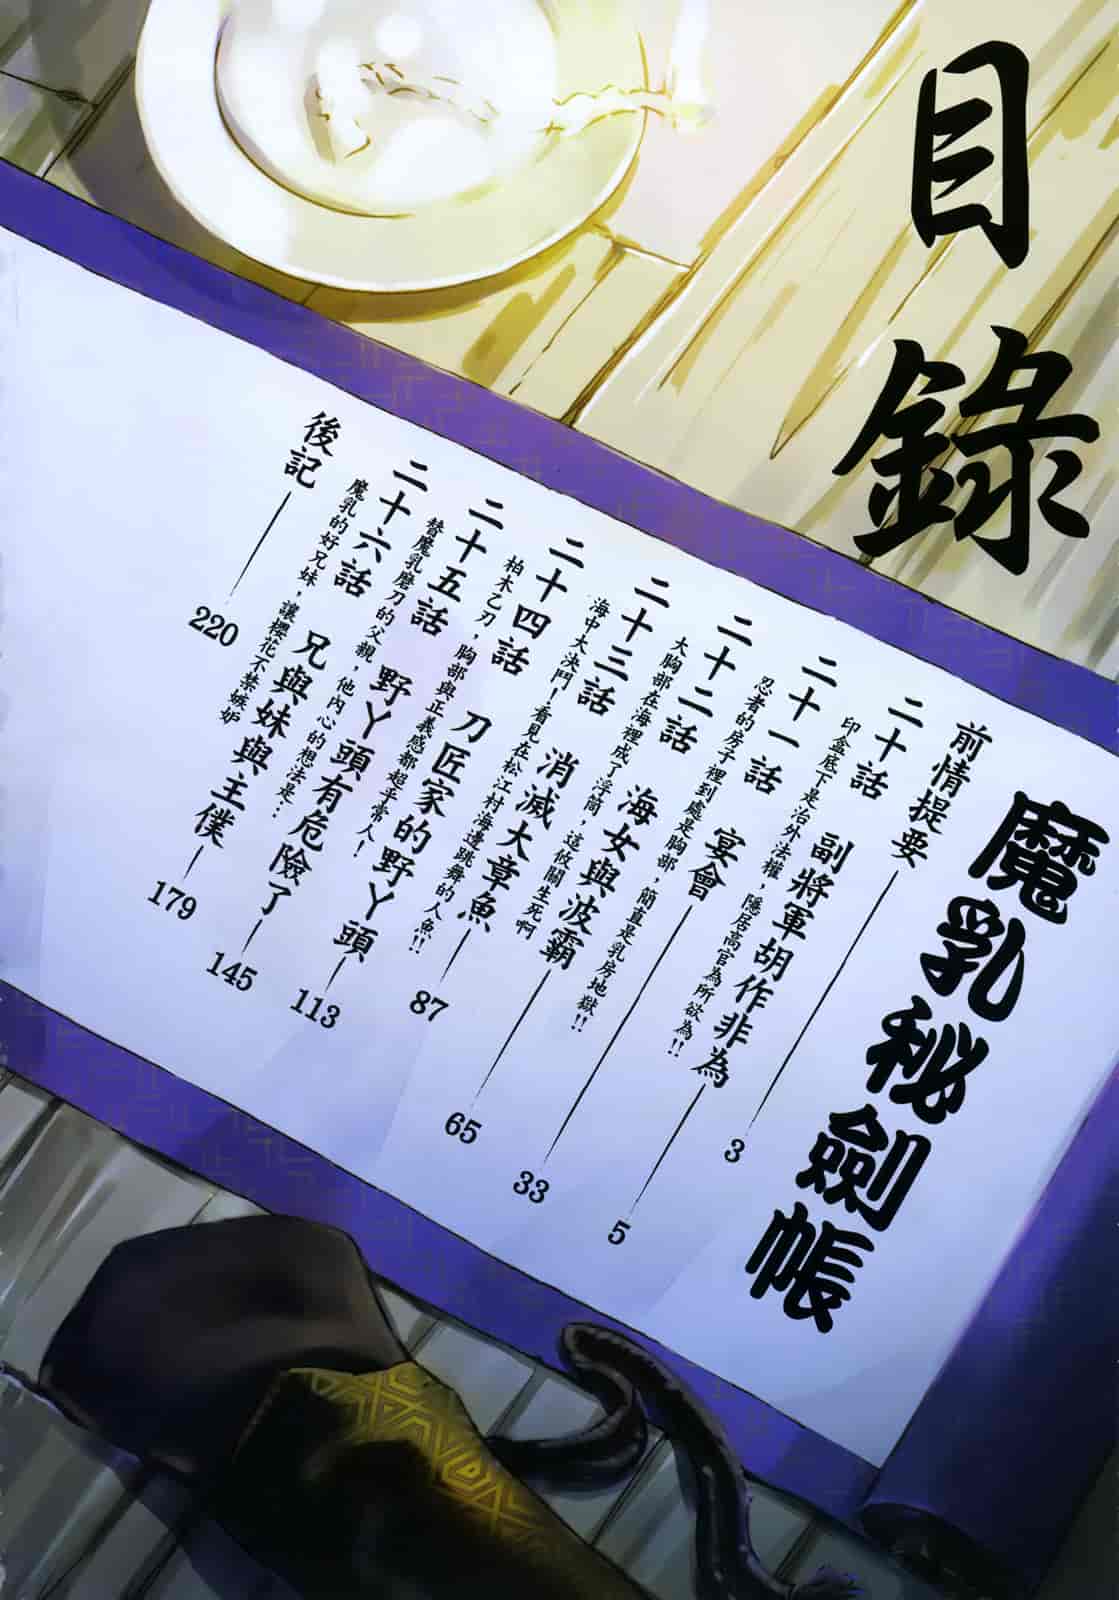 目錄
魔乳秘劍帳
前情提要 3
二十話 副將軍胡作非為 5
印盒底下是治外法權，隱居高官為所欲為!!
二十一話 宴會 33
忍者的房子裡到處是胸部，簡直是乳房地獄!!
二十二話 海女與波霸 65
大胸部在海裡成了浮筒，這攸關生死啊
二十三話 消滅大章魚 87
海中大決鬥！看見在松江村海邊跳舞的人魚!!
二十四話 刀匠家的野丫頭 113
柏木乙刃，胸部與正義感都超乎常人！
二十五話 野丫頭有危險了 145
替魔乳磨刀的父親，他內心的想法是…
二十六話 兄與妹與主僕 179
魔乳的好兄妹，讓櫻花不禁嫉妒
後記 220